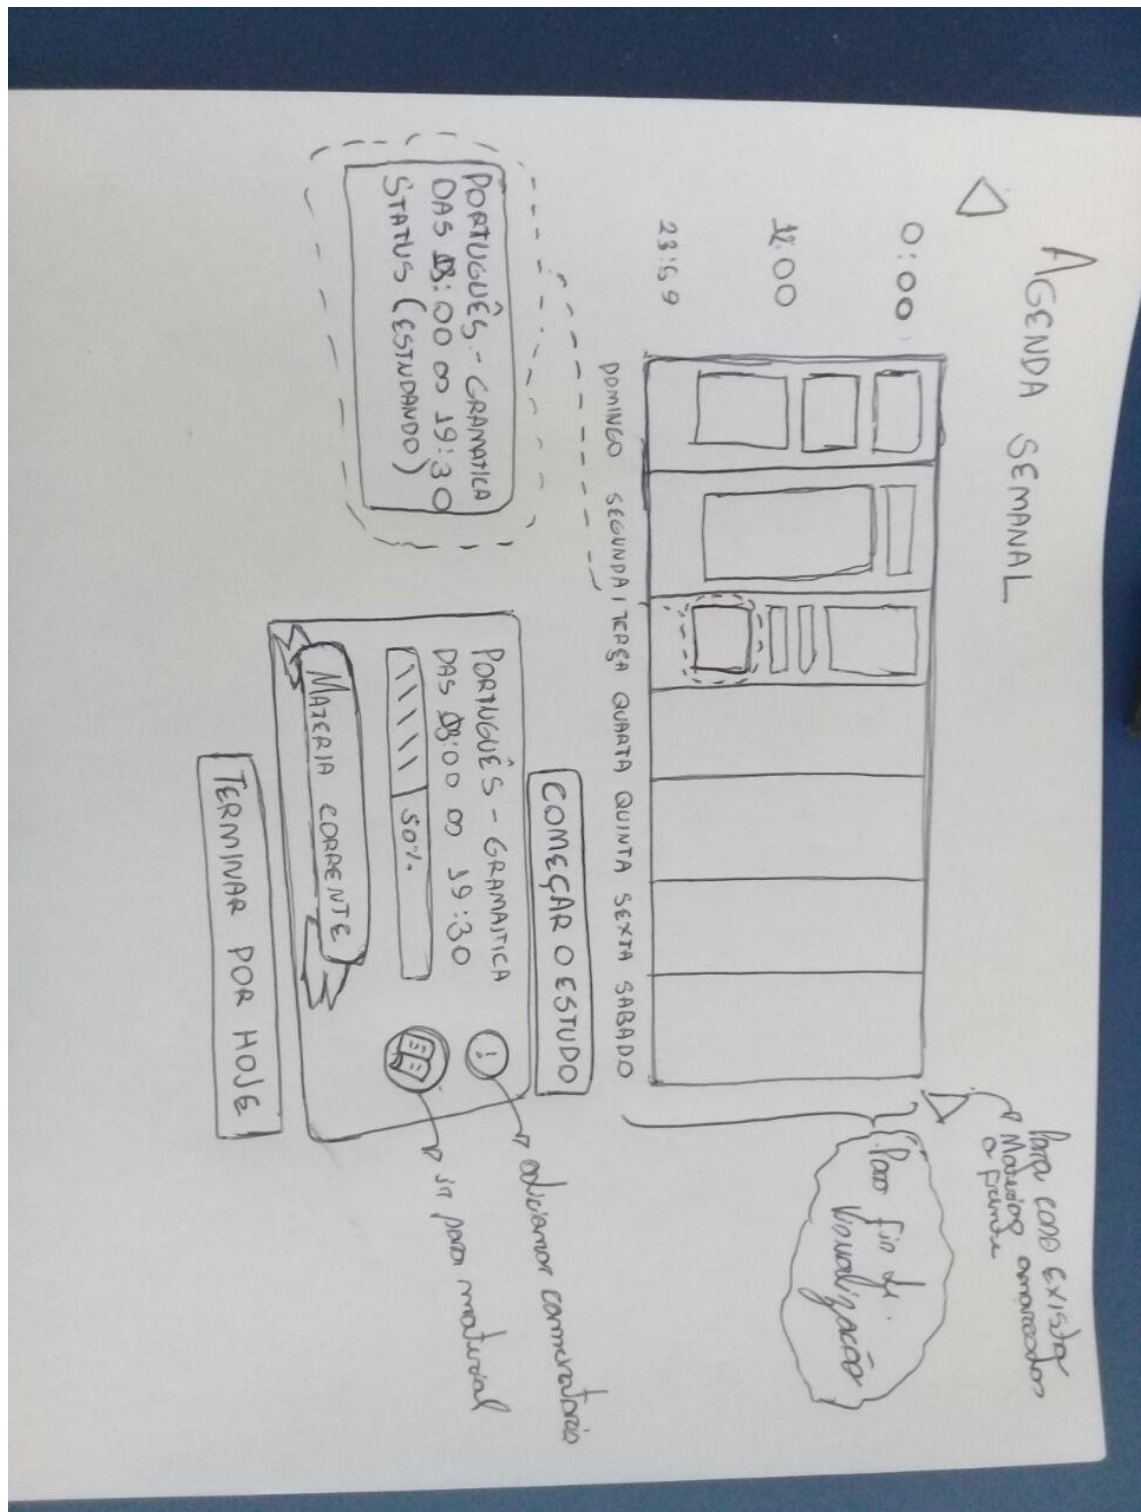 AGENDA SEMANAL
0:00
12:00
23:59
DOMINGO SEGUNDA TERÇA QUARTA QUINTA SEXTA SABADO
Para caso exista
Materias
a frente
Para fin de
Visualização
PORTUGUÊS - GRAMATICA
DAS 18:00 as 19:30
STATUS (ESTUDANDO)
COMEÇAR O ESTUDO
PORTUGUÊS - GRAMATICA
DAS 18:00 as 19:30
50%
MATERIA CORRENTE
!
adicionar comentario
ir para material
TERMINAR POR HOJE